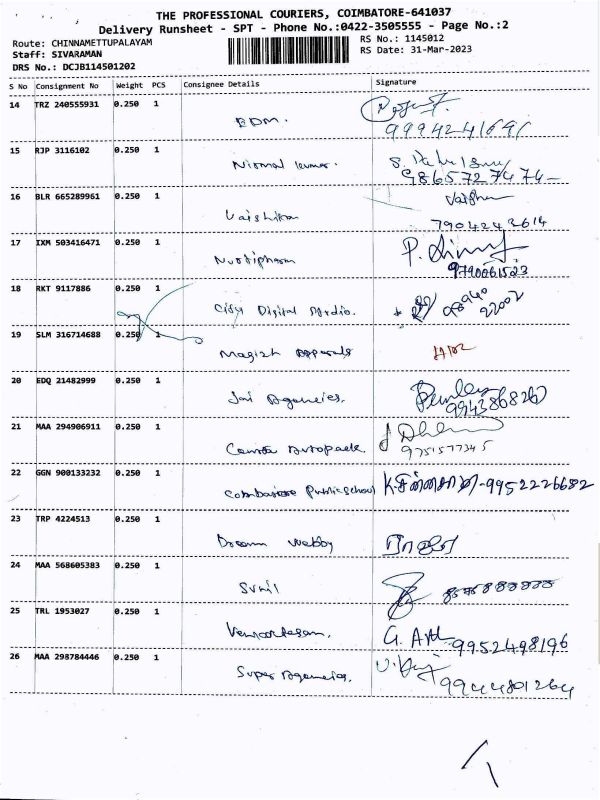 THE PROFESSIONAL COURIERS, COIMBATORE-641037
Delivery Runsheet - SPT - Phone No.:0422-3505555 - Page No.:2
Route: CHINNAMETTUPALAYAM RS No.: 1145012
Staff: SIVARAMAN RS Date: 31-Mar-2023
DRS No.: DCJB114501202
S No Consignment No Weight PCS Consignee Details Signature
14 TRZ 240555931 0.250 1
BDM.
9994241691
15 RJP 3116102 0.250 1
Nirmal kumar.
9865727474
16 BLR 665289961 0.250 1
Vaishnavi
7904243614
17 IXM 503416471 0.250 1
Nutripharm
9790061523
18 RKT 9117886 0.250 1
City Digital Studio.
19 SLM 316714688 0.250 1
Magizh Apparals
20 EDQ 21482999 0.250 1
Sai Agencies.
21 MAA 294906911 0.250 1
9751577345
22 GGN 900133232 0.250 1
Coimbatore Public School 9952226682
23 TRP 4224513 0.250 1
Dream webby
24 MAA 568605383 0.250 1
Sunil
25 TRL 1953027 0.250 1
Venkatesan. 9952498196
26 MAA 298784446 0.250 1
Super Agencies.
9944801264